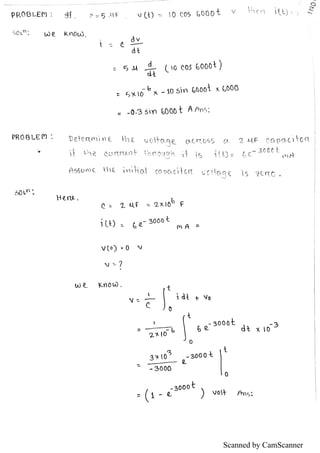 PROBLEM: If. C = 5 μF v(t) = 10 cos 6000t v then i(t) =
Soln: we know,
i = c dv/dt
= 5 μ d/dt (10 cos 6000t)
= 5×10^-6 × -10 sin 6000t × 6000
= -0.3 sin 6000t A Ans:
PROBLEM: Determine the voltage across a 2 μF capacitor
if the current through it is i(t) = 6e^-3000t mA
Assume the initial capacitor voltage is zero.
Soln:
Here,
C = 2 μF = 2×10^6 F
i(t) = 6e^-3000t mA =
V(0) = 0 v
v = ?
we know,
v = 1/C ∫_0^t i dt + V0
= 1/2×10^-6 ∫_0^t 6 e^-3000t dt × 10^-3
= 3×10^3/-3000 e^-3000t |_0^t
= (1 - e^-3000t) volt Ans:
Scanned by CamScanner